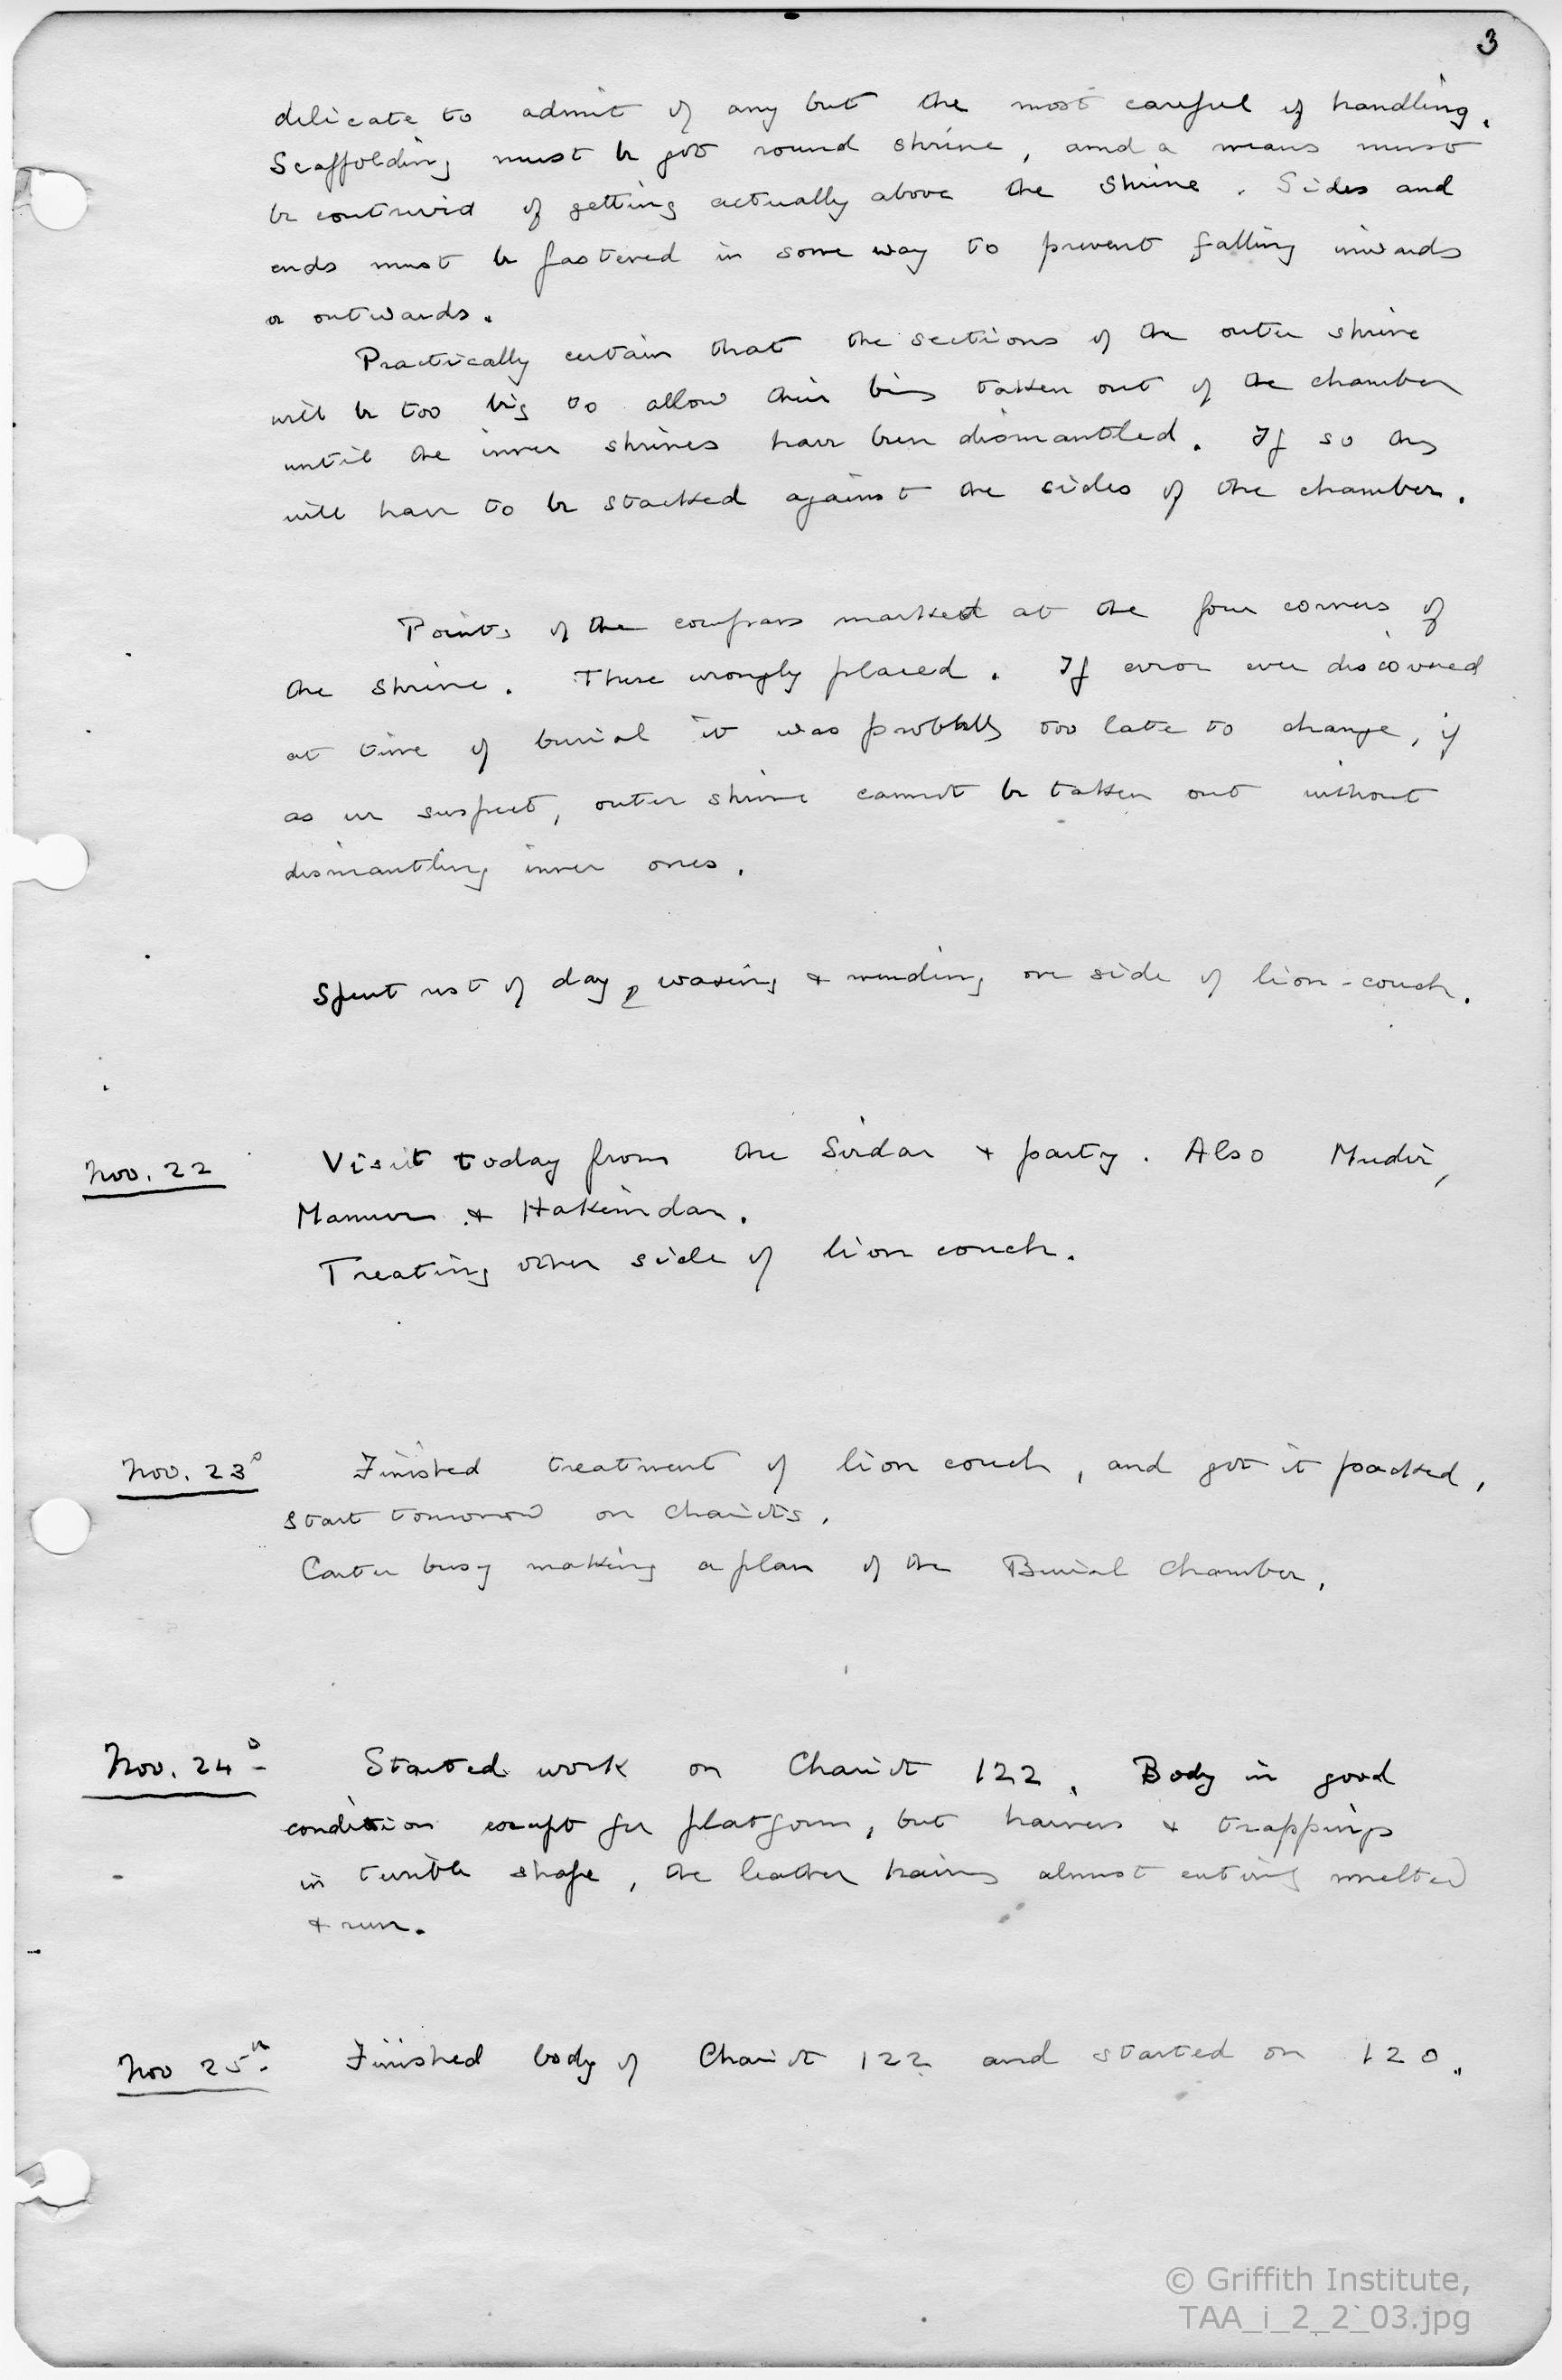 3
delicate to admit of any but the most careful of handling.
Scaffolding must be got round shrine, and a means must
be contrived of getting actually above the shrine. Sides and
ends must be fastened in some way to prevent falling inwards
or outwards.
Practically certain that the sections of the outer shrine
will be too big to allow their being taken out of the chamber
until the inner shrines have been dismantled. If so they
will have to be stacked against the sides of the chamber.
Points of the compass marked at the four corners of
the shrine. These wrongly placed. If error ever discovered
at time of burial it was probably too late to change, if
as we suspect, outer shrine cannot be taken out without
dismantling inner ones.
Spent rest of day waxing & mending one side of lion-couch.
Nov. 22 Visit today from the Sirdar & party. Also Mudir,
Mamur & Hakimdar.
Treating other side of lion couch.
Nov. 23 Finished treatment of lion couch, and got it packed,
start tomorrow on chariots.
Carter busy making a plan of the Burial Chamber.
Nov. 24 Started work on Chariot 122. Body in good
condition except for platform, but harness & trappings
in terrible shape, the leather having almost entirely melted
& run.
Nov 25th Finished body of Chariot 122 and started on 120.
© Griffith Institute,
TAA_i_2_2_03.jpg